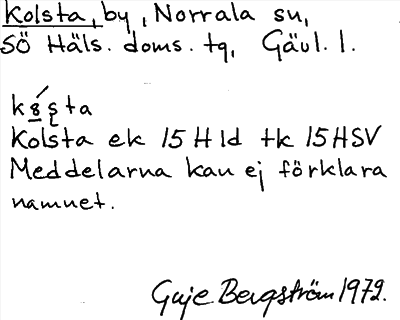 Kolsta, by, Norrala sn,
SÖ Häls. doms. tg, Gävl. l.
Kolsta ek 15 H 1d tk 15 HSV
Meddelarna kan ej förklara
namnet.
Gaje Bergström 1972.